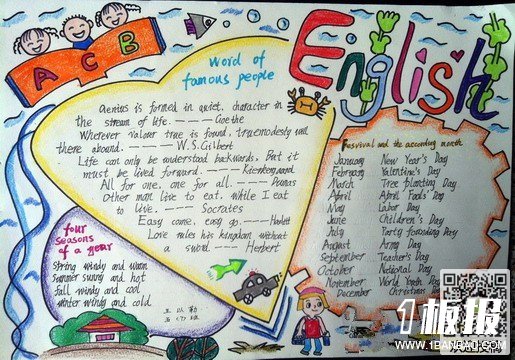 A C B
English
Word of
famous people
Genius is formed in quiet, character in
the stream of life. ———— Goethe
Wherever valour true is found, true modesty will
there abound. ———— W.S.Gilbert
Life can only be understood backwards, but it
must be lived forward. ————
All for one, one for all. ———— Dumas
Other man live to eat, while I eat
to live. ———— Socrates
Easy come, easy go. ————
Love rules his kingdom without
a sword. ———— Herbert
four
seasons
of a year
Spring windy and warm
Summer sunny and hot
fall windy and cool
winter windy and cold
and the according month
January New Year's Day
February Valentine's Day
March Tree planting Day
April April Fools' Day
May Labor Day
June Children's Day
July Party founding Day
August Army Day
September Teacher's Day
October National Day
November World Youth Day
December Christmas Day
1板报
WWW.1BANBAO.COM